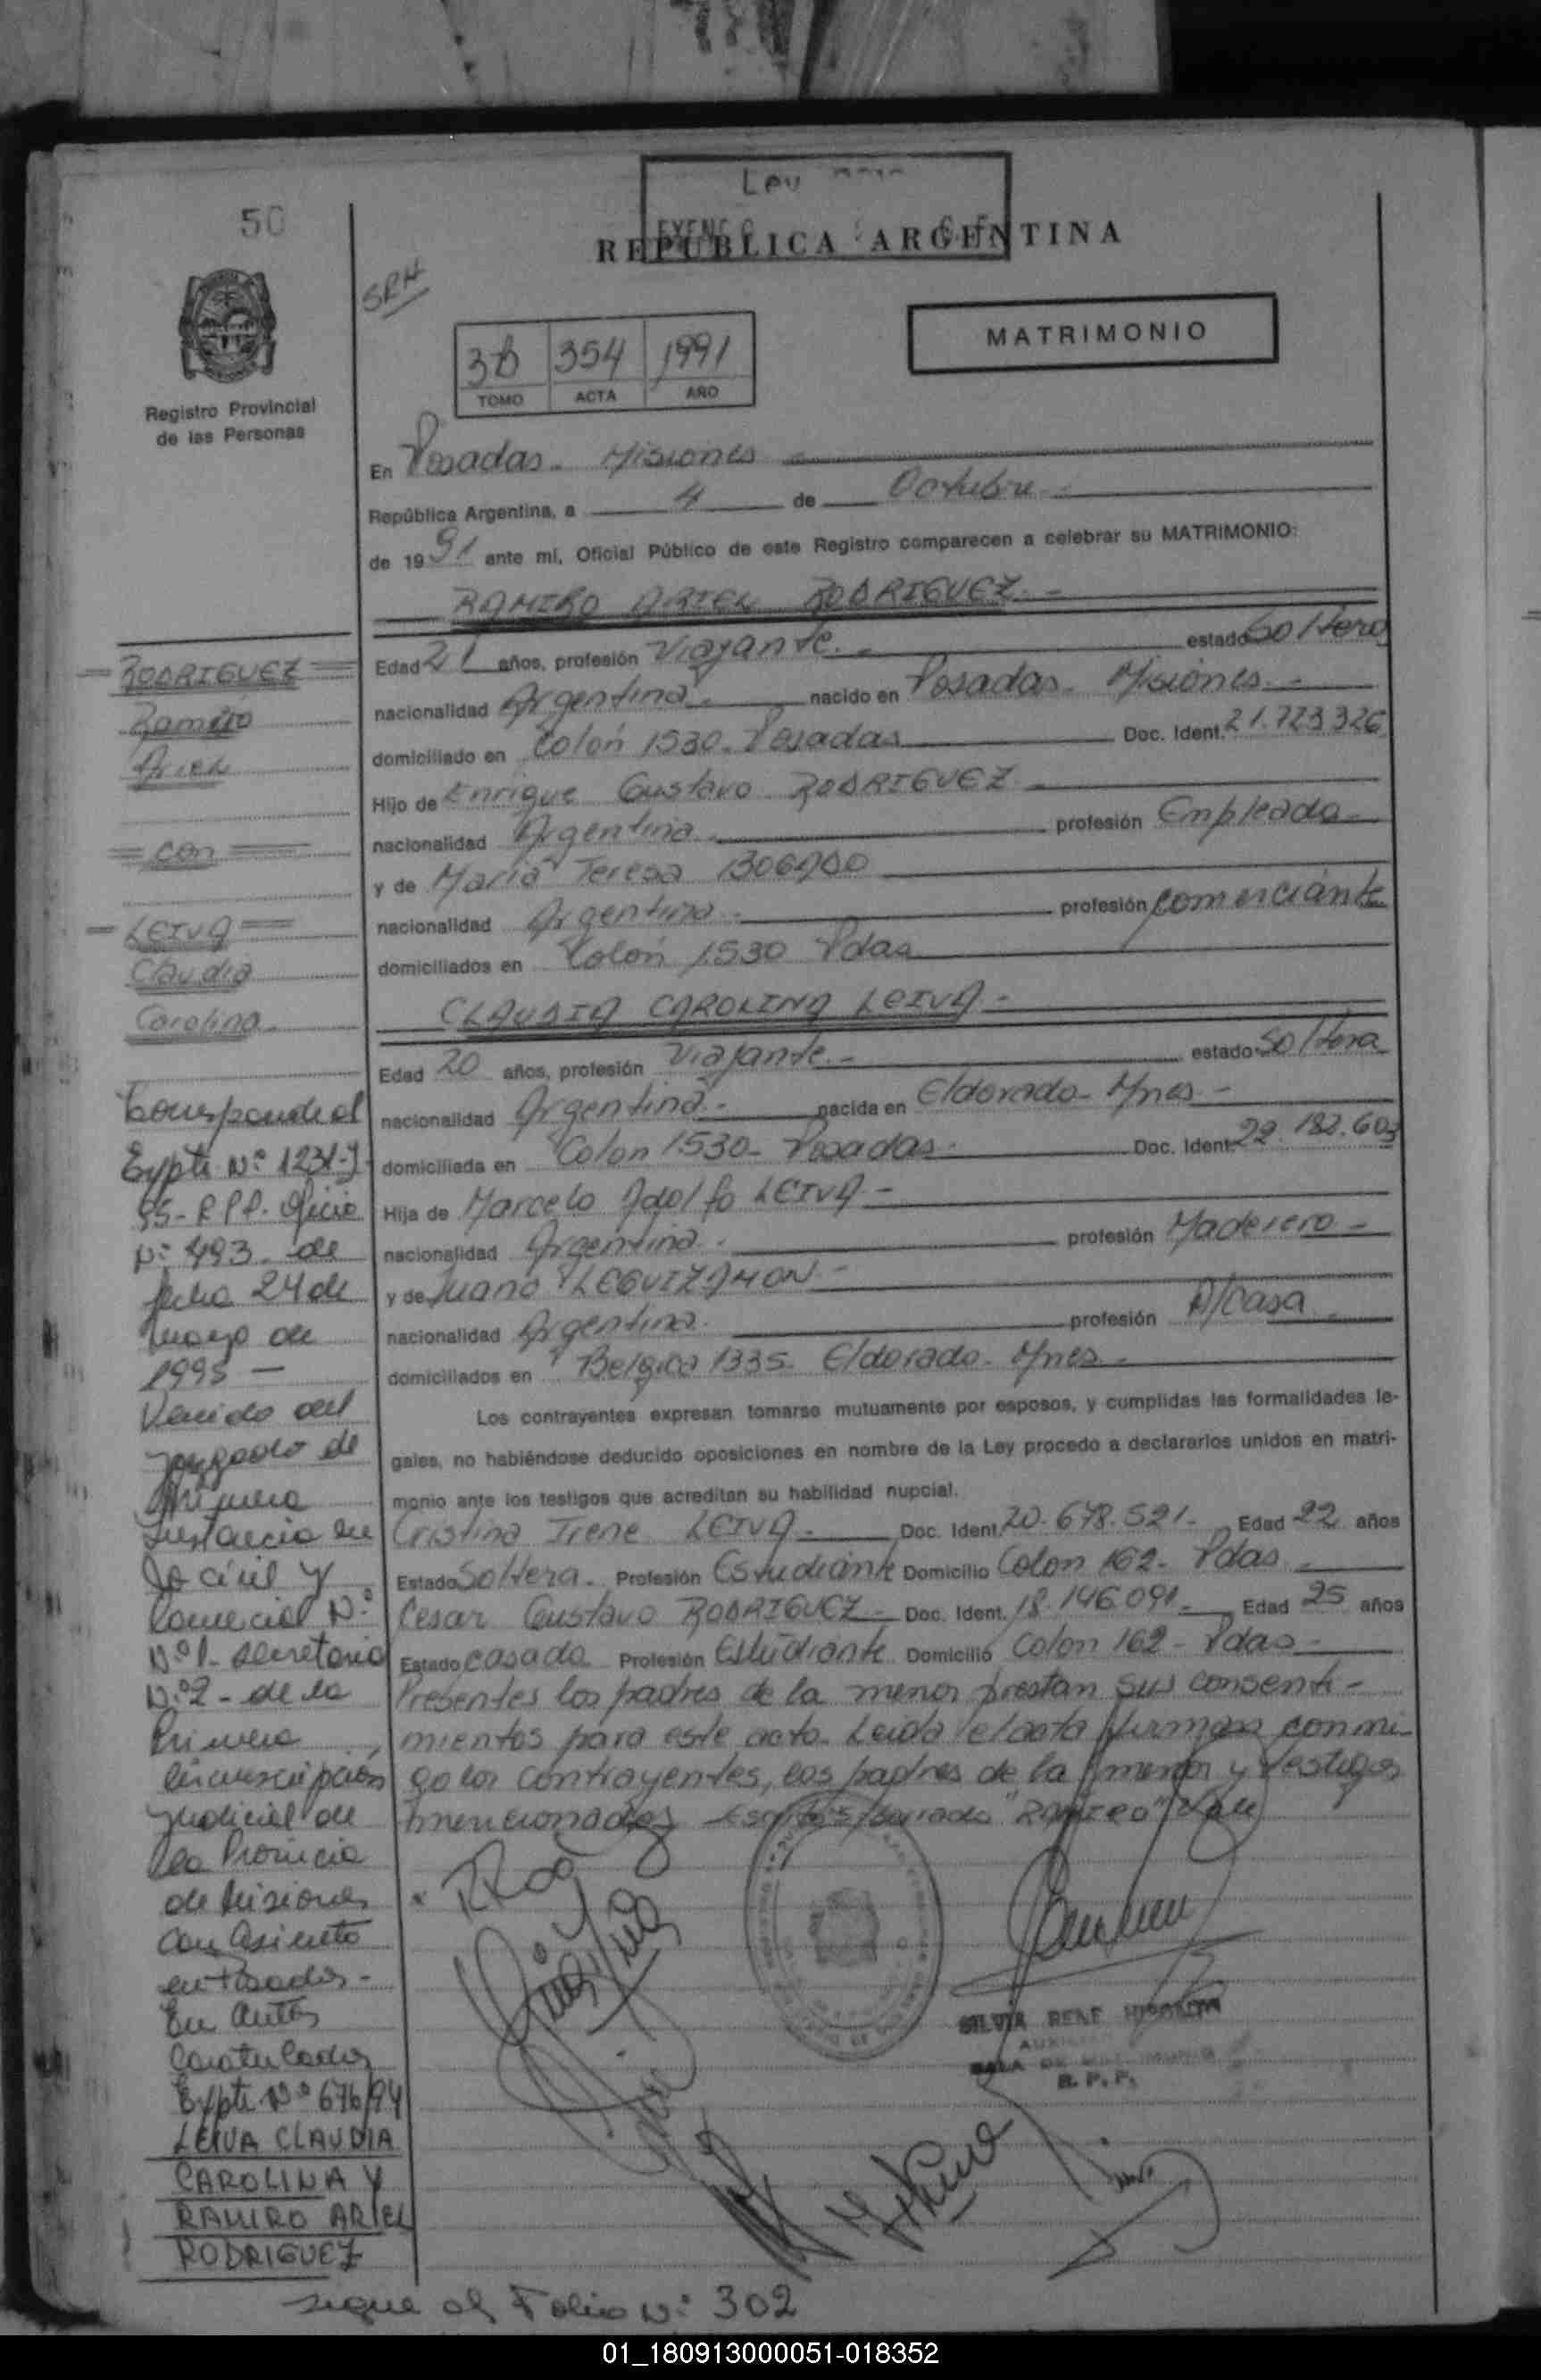 50
Ley
REPUBLICA ARGENTINA
SRH
MATRIMONIO
3b 354 1991
TOMO ACTA AÑO
Registro Provincial
de las Personas
En Posadas - Misiones
República Argentina, a 4 de Octubre -
de 1991 ante mí, Oficial Público de este Registro comparecen a celebrar su MATRIMONIO:
RAMIRO ARIEL RODRIGUEZ. -
Edad 21 años, profesión Viajante. - estado Soltero
nacionalidad Argentina. - nacido en Posadas - Misiones. -
domiciliado en Colón 1530. Posadas Doc. Ident. 21.723.326
Hijo de Enrique Gustavo RODRIGUEZ
nacionalidad Argentina profesión Empleado -
y de Maria Teresa BOGADO
nacionalidad Argentina - profesión comerciante
domiciliados en Colón 1530 Pdas
CLAUDIA CAROLINA LEIVA -
Edad 20 años, profesión Viajante. - estado Soltera
nacionalidad Argentina. - nacida en Eldorado - Mnes -
domiciliada en Colon 1530 - Posadas - Doc. Ident. 22.182.603
Hija de Marcelo Adolfo LEIVA -
nacionalidad Argentina. profesión Maderero -
y de Juana LEGUIZAMON -
nacionalidad Argentina. profesión A/casa
domiciliados en Belgica 1335 - Eldorado - Mnes -
Los contrayentes expresan tomarse mutuamente por esposos, y cumplidas las formalidades le-
gales, no habiéndose deducido oposiciones en nombre de la Ley procedo a declararlos unidos en matri-
monio ante los testigos que acreditan su habilidad nupcial.
Cristina Irene LEIVA - Doc. Ident. 20.678.521 - Edad 22 años
Estado Soltera. Profesión Estudiante Domicilio Colon 162 - Pdas
Cesar Gustavo RODRIGUEZ - Doc. Ident. 18.146.091 - Edad 25 años
Estado casado Profesión Estudiante Domicilio Colon 162 - Pdas -
Presentes los padres de la menor prestan sus consenti-
mientos para este acto. Leida el acta firman conmi-
go los contrayentes, los padres de la menor y testigos
mencionados "RAMIRO" Vale
SILVIA RENE
R. P. P.
RODRIGUEZ
Ramiro
Ariel
= con =
LEIVA
Claudia
Carolina -
Corresponde al
Expte Nº 1231-J-
95 - R.P.P. Oficio
Nº 493 - de
fecha 24 de
mayo de
1995 -
Venido del
Juzgado de
Primera
Instancia en
lo civil y
Comercial Nº
Nº 1 - secretaria
Nº 2 - de la
Primera
Circunscripción
Judicial de
la Provincia
de Misiones
con asiento
en Posadas -
En autos
Caratulados
Expte Nº 676/94
LEIVA CLAUDIA
CAROLINA Y
RAMIRO ARIEL
RODRIGUEZ
sigue al Folio Nº 302
01_180913000051-018352